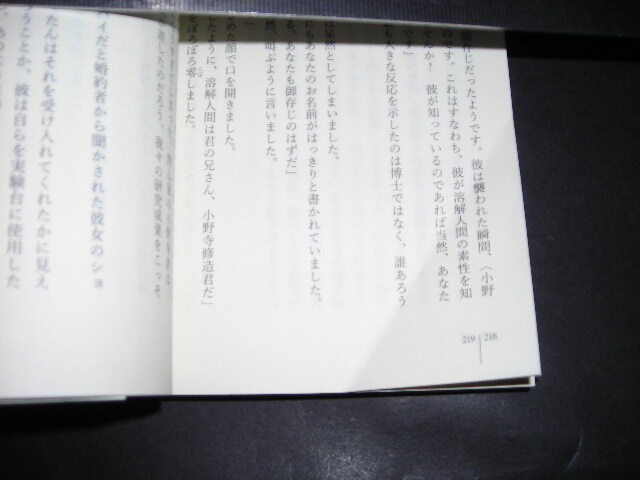 御存じだったようです。彼は襲われた瞬間、〈小野
のです。これはすなわち、彼が溶解人間の素性を知
せんか？　彼が知っているのであれば当然、あなた
です」
も大きな反応を示したのは博士ではなく、誰あろう
は呆然としてしまいました。
にもあなたのお名前がはっきりと書かれていました。
る、あなたも御存じのはずだ」
然、叫ぶように言いました。
めた顔で口を開きました。
たように、溶解人間は君の兄さん、小野寺修造君だ」
をぽろぽろ零しました。
したのだろう、我々の研究成果をこっそ
イだと婚約者から聞かされた彼女のショ
たんはそれを受け入れてくれたかに見え
うことか、彼は自らを実験台に使用した
239 238